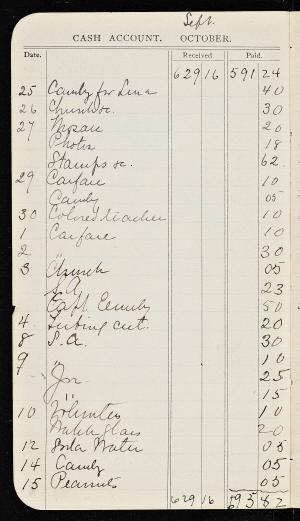 Sept.
CASH ACCOUNT. OCTOBER.
Date. Received. Paid.
629 16 591 24
25 Candy for Lena 40
26 Church &c. 30
27 20
Photos 18
Stamps &c. 62
29 Carfare 10
Candy 05
30 Colored teacher 10
1 Carfare 10
2 " 30
3 Church 05
S.A. 23
Capt. 50
4 cut. 20
8 S.A. 30
9 " 10
9 25
" 15
10 10
Watch Glass 20
12 Soda Water 05
14 Candy 05
15 Peanuts 05
629 16 595 82